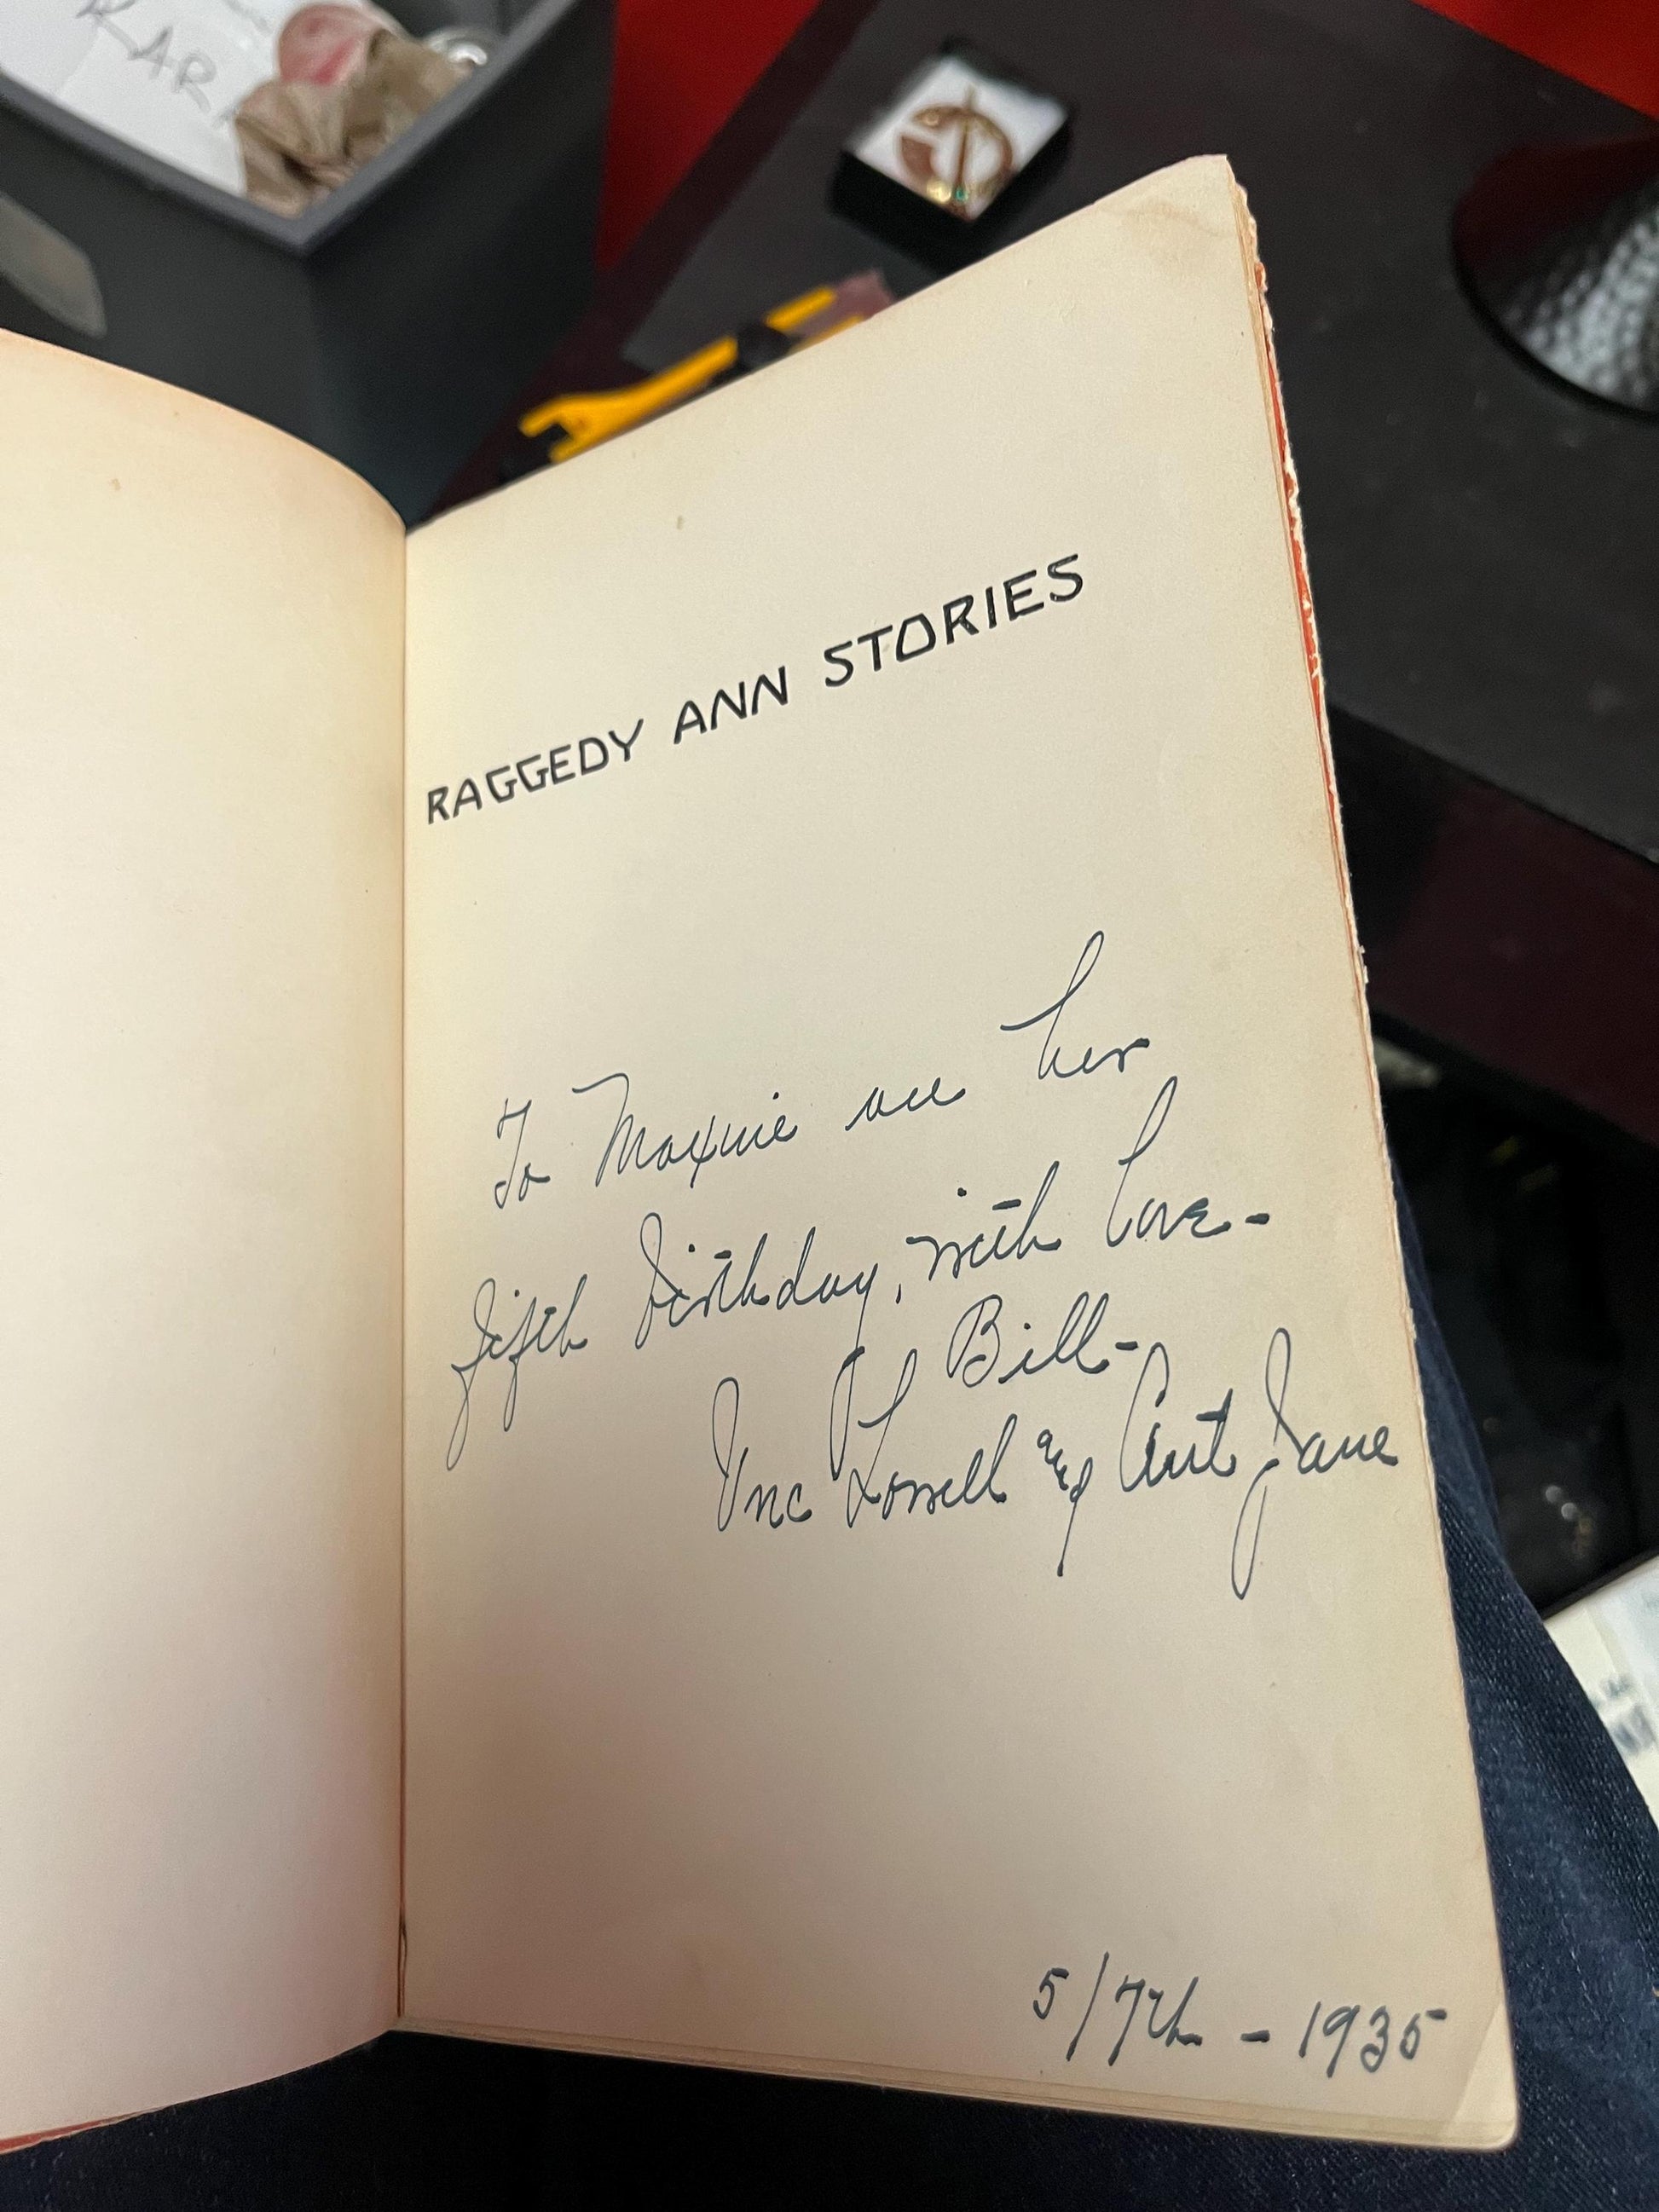 RAR
RAGGEDY ANN STORIES
To Maxine on her
fifth birthday, with love-
Bill-
Unc Lowell and Aunt Jane
5/7th - 1935